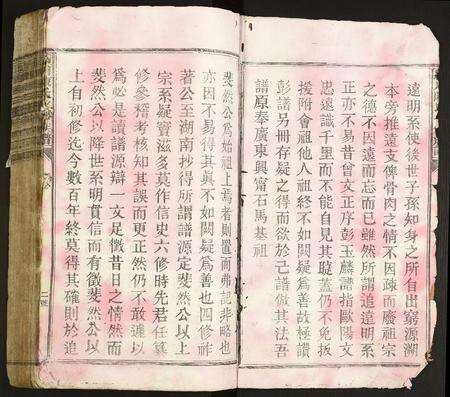 遠明系使後世子孫知身之所有出窮源溯
本旁推遠支俾骨肉之情不因疎而廢祖宗
之德不因遠而忘而已雖然所謂追遠明系
正亦不易昔文正序彭玉麟譜指歐陽文
忠遠識千里而不能自見其睫蓋仍不免扳
援附會祖他人祖終不如闕疑爲善故極讚
彭譜另冊存疑之得而欲於己譜倣其法吾
譜原奉廣東興甯石馬基祖
斐然公爲始祖上焉者則置而弗記非略也
亦因不易得其眞不如闕疑爲善也四修祚
著公至湖南抄得所謂譜源定斐然公以上
宗系疑竇滋多莫作信史六修時先君任纂
修參稽考核知其誤而更正然仍不敢遽以
爲必是讀譜源辯一文足徵昔日之情然而
斐然公以降世系明貫信而有徵斐然公以
上自初修迄今數百年終莫得其確則於追